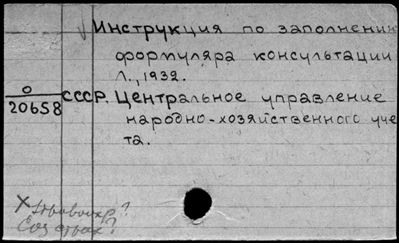 Инструкция по заполнению
формуляра консультации
Л., 1932.
О
20658
СССР. Центральное управление
народно-хозяйственного уче
та.